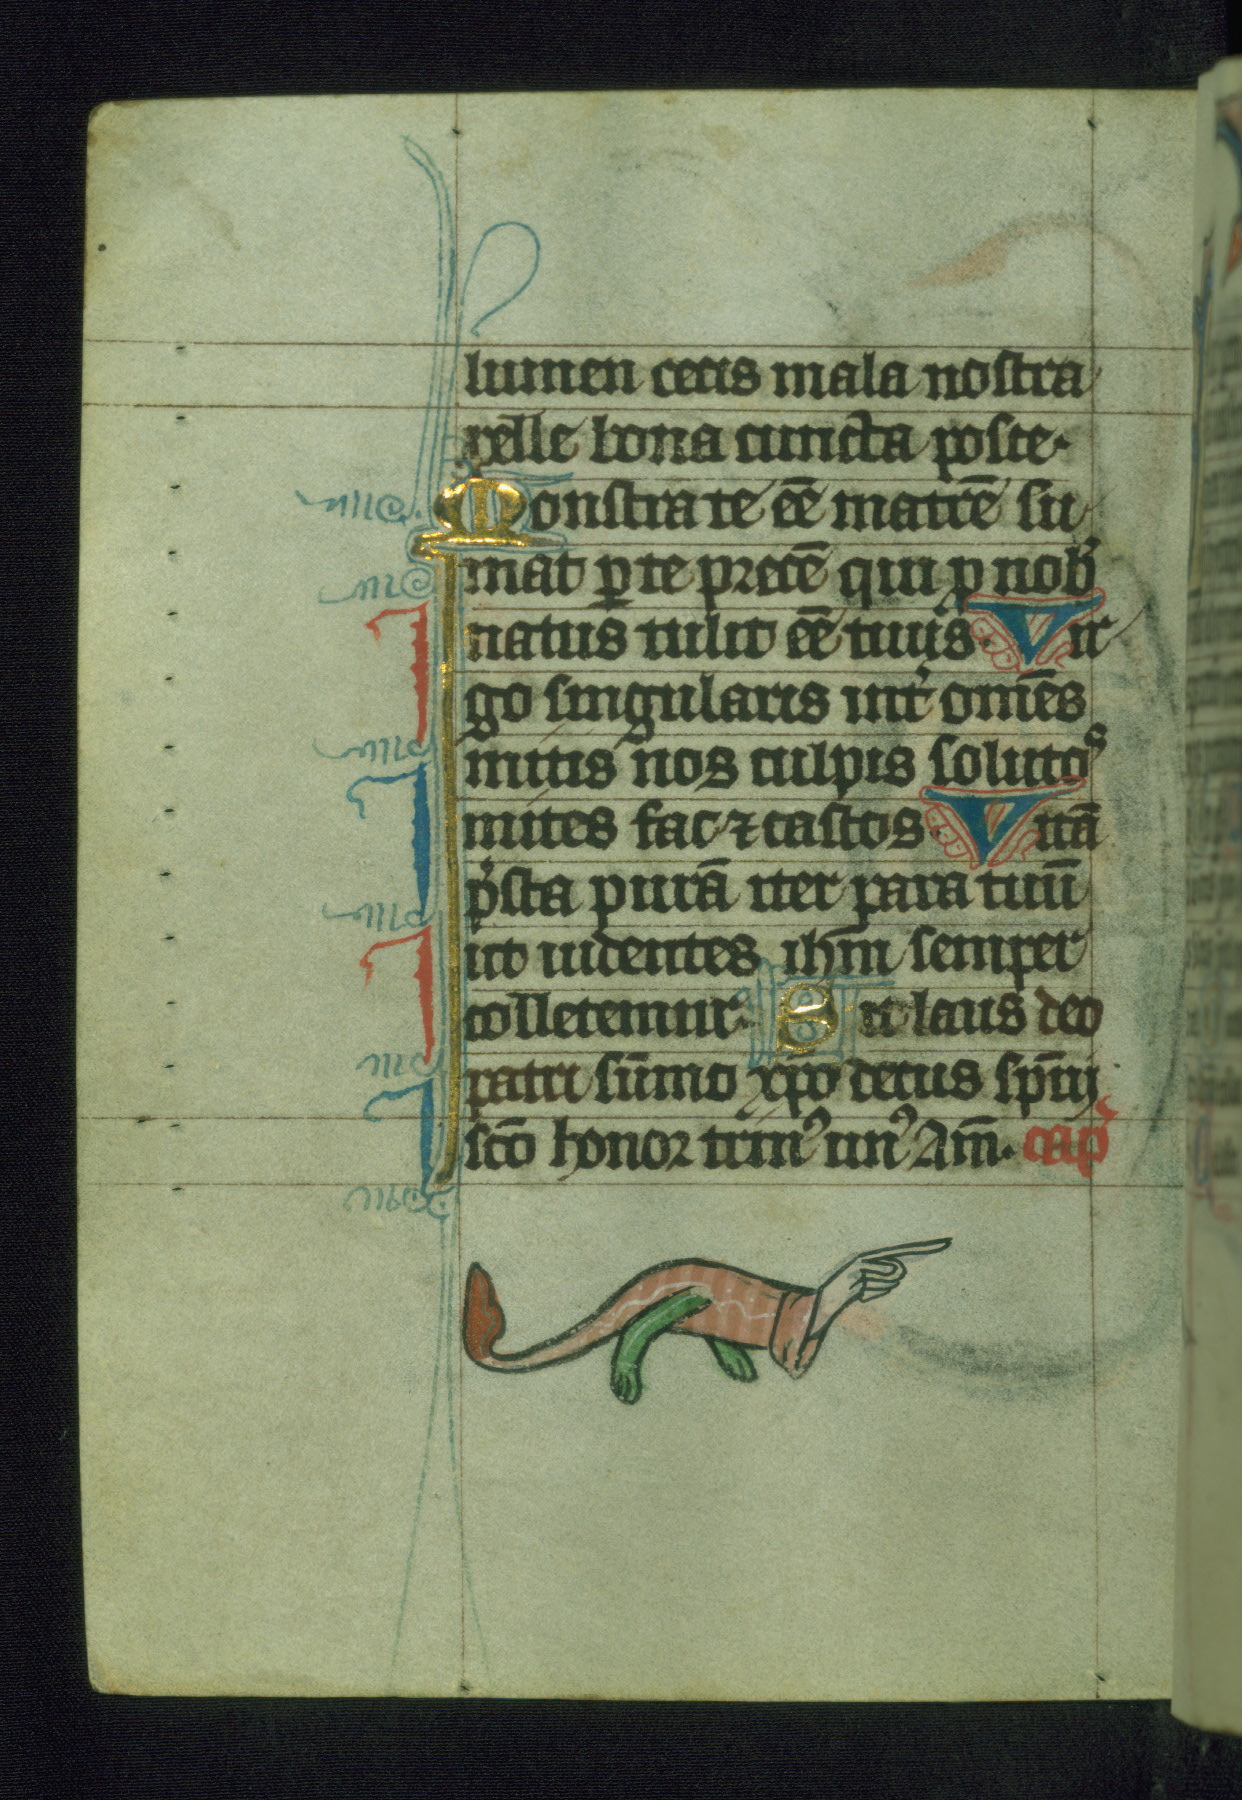 lumen cecis mala nostra
pelle bona cuncta posce.
Monstra te eē matrē su
mat ꝑ te precē qui ꝓ nob̾
natus tulit eē tuus. Vir
go singularis int̾ omēs
mitis nos culpis soluto⁹
mites fac ⁊ castos. Vitā
p̾sta purā iter para tuū
ut uidentes ih̄m semper
colletemur. Sit laus deo
patri sūmo xp̄o decus sp̄ui
sc̄o honor trin⁹ un⁹ Am̄. cap̾